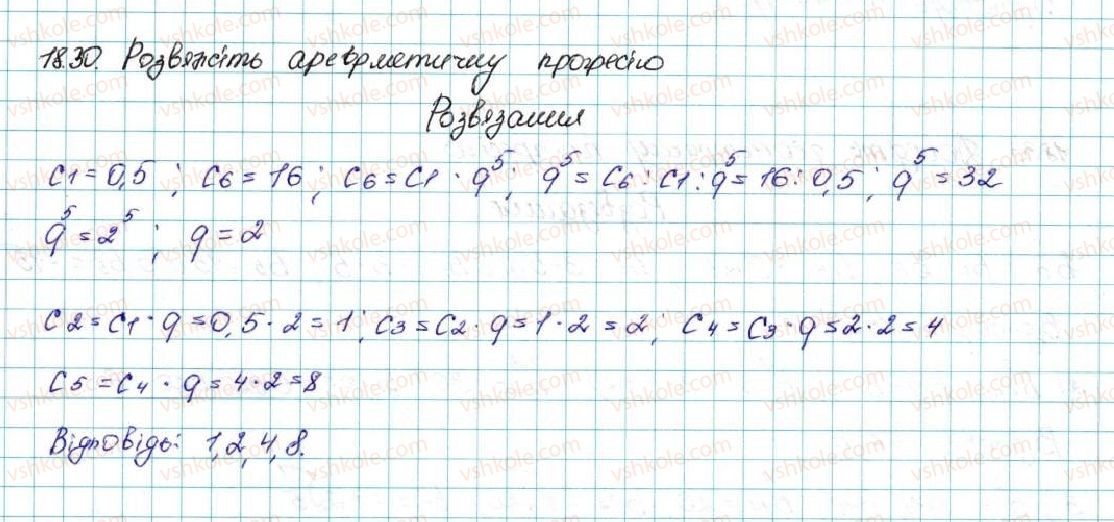 18.30. Розвяжіть ареврметичну прогресію
Розвязання
c1 = 0,5 ; c6 = 16 ; c6 = c1 · q^5 ; q^5 = c6 : c1 ; q^5 = 16 : 0,5 ; q^5 = 32
q^5 = 2^5 ; q = 2
c2 = c1 · q = 0,5 · 2 = 1 ; c3 = c2 · q = 1 · 2 = 2 ; c4 = c3 · q = 2 · 2 = 4
c5 = c4 · q = 4 · 2 = 8
Відповідь: 1, 2, 4, 8.